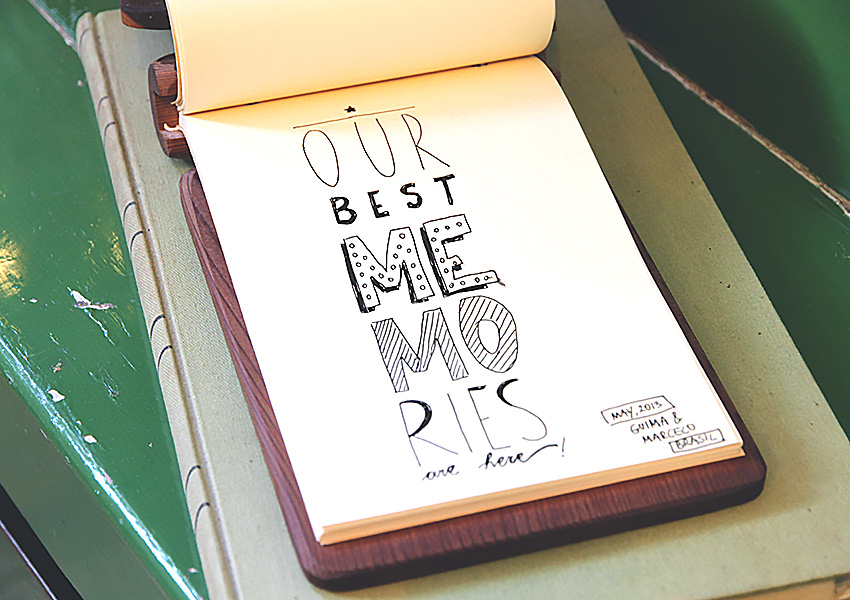 OUR
BEST
ME
MO
RIES
are here!
MAY, 2013
GUIMA &
MARCECO
BRASIL